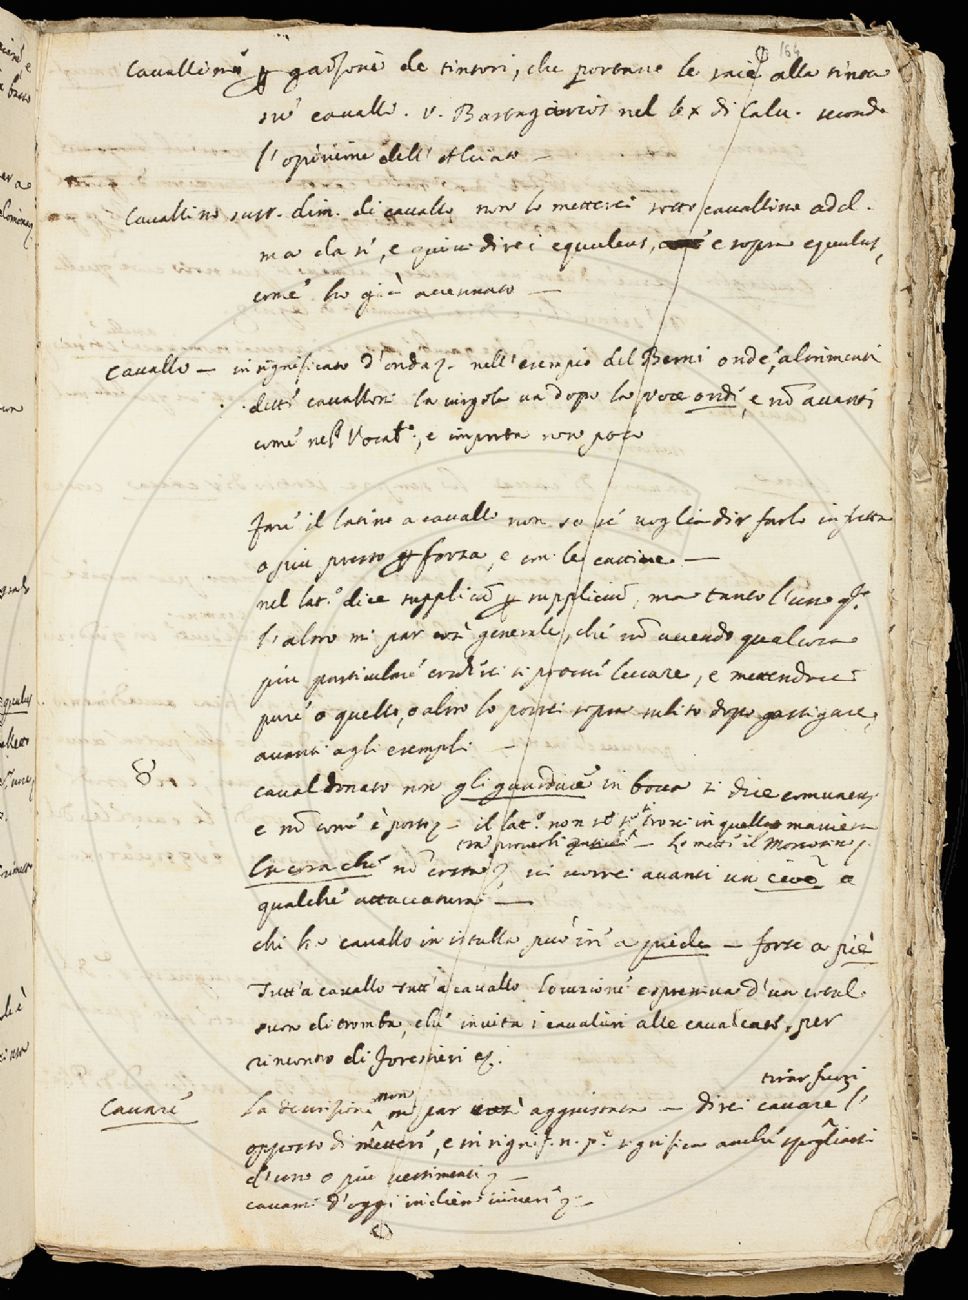 164
Cavalline garzone de tintori, che portano le saie alla tinta
su cavalli. v. nel lex di Calv. secondo
l'opinione dell' Alciato —
Cavallino sust. dim. di cavallo non lo metterei sotto cavallino add.
ma da sé, e quivi direi equuleus, e sopra equulus,
come ho già accennato —
Cavallo — in significato d'onda nell'esempio del Berni onde, altrimenti
detti cavalloni la virgola va dopo la voce ondi, e nō avanti
come nel Vocab.º, e importa non poco
fare il latino a cavallo non so se voglia dir farlo in fretta
o più presto forza, e con le cattive —
nel lat.º dice suppliciū supplicium, ma tanto l'uno
l'altro mi par così generale, che nō avendo qualcosa
più particolare si lasciare, e
pure o quello, o altro lo porrei sopra subito dopo gastigare,
avanti agli esempli —
caval donato non gli guardare in bocca si dice comunem.
e nō come è posto — il lat.º non se si trovi in quella maniera
tra proverbi — lo metti il Monosini
Ancora che nō vi vorrei avanti un cioè o
qualche attaccatura —
chi ha cavallo in istalla può ir a piede — forse a piè
Tutt'a cavallo tutt'a cavallo locuzione espressiva d'un cotal
suon di tromba, che invita i cavalieri alle cavalcate, per
rincontro di forestieri
Cavare
la decisione non mi par così aggiustata — direi cavare tirar fuori l'
opposto di mettere, e in signif. n. p. significa anche spogliarsi
d'uno o più vestimenti
cavami d'oggi